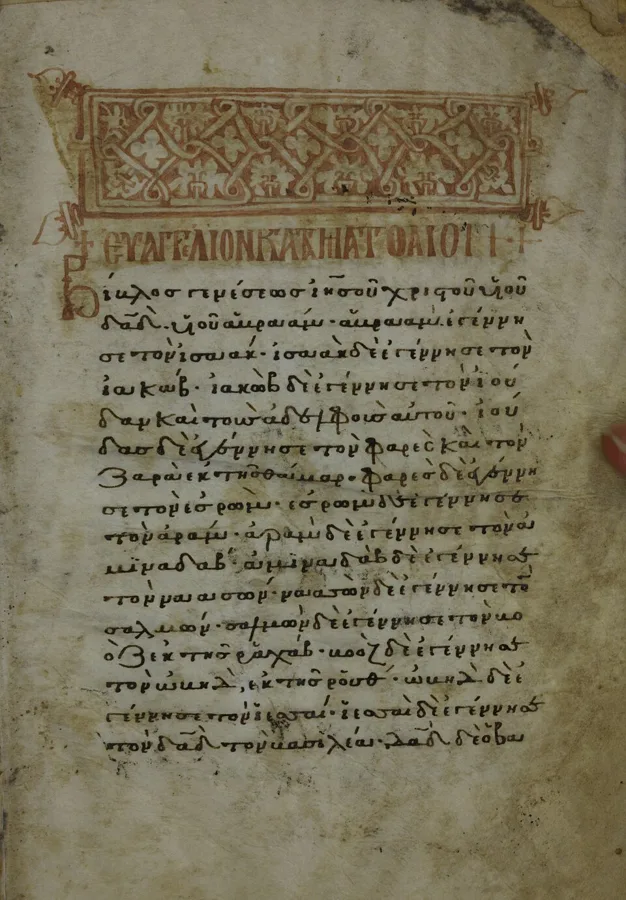 ΕΥΑΓΓΕΛΙΟΝ ΚΑΤΑ ΜΑΤΘΑΙΟΝ
Βίβλος γενέσεως ἰῦ χριστοῦ υἱοῦ
δαδ υἱοῦ ἀβραάμ · ἀβραὰμ ἐγέννη
σε τὸν ἰσαάκ · ἰσαὰκ δὲ ἐγέννησε τὸν
ἰακώβ · ἰακὼβ δὲ ἐγέννησε τὸν ἰού
δαν καὶ τοὺς ἀδελφοὺς αὐτοῦ · ἰού
δας δὲ ἐγέννησε τὸν φαρὲς καὶ τὸν
ζαρὰ ἐκ τῆς θάμαρ · φαρὲς δὲ ἐγέννη
σε τὸν ἐσρώμ · ἐσρὼμ δὲ ἐγέννησε
τὸν ἀράμ · ἀρὰμ δὲ ἐγέννησε τὸν ἀ
μιναδάβ · ἀμιναδὰβ δὲ ἐγέννησε
τὸν ναασσών · ναασσὼν δὲ ἐγέννησε τὸν
σαλμών · σαλμὼν δὲ ἐγέννησε τὸν βο
ὸζ ἐκ τῆς ῥαχάβ · βοὸζ δὲ ἐγέννησε
τὸν ὠβὴδ ἐκ τῆς ῥούθ · ὠβὴδ δὲ ἐ
γέννησε τὸν ἰεσσαί · ἰεσσαὶ δὲ ἐγέννησε
τὸν δαδ τὸν βασιλέα · δαδ δὲ ὁ βα